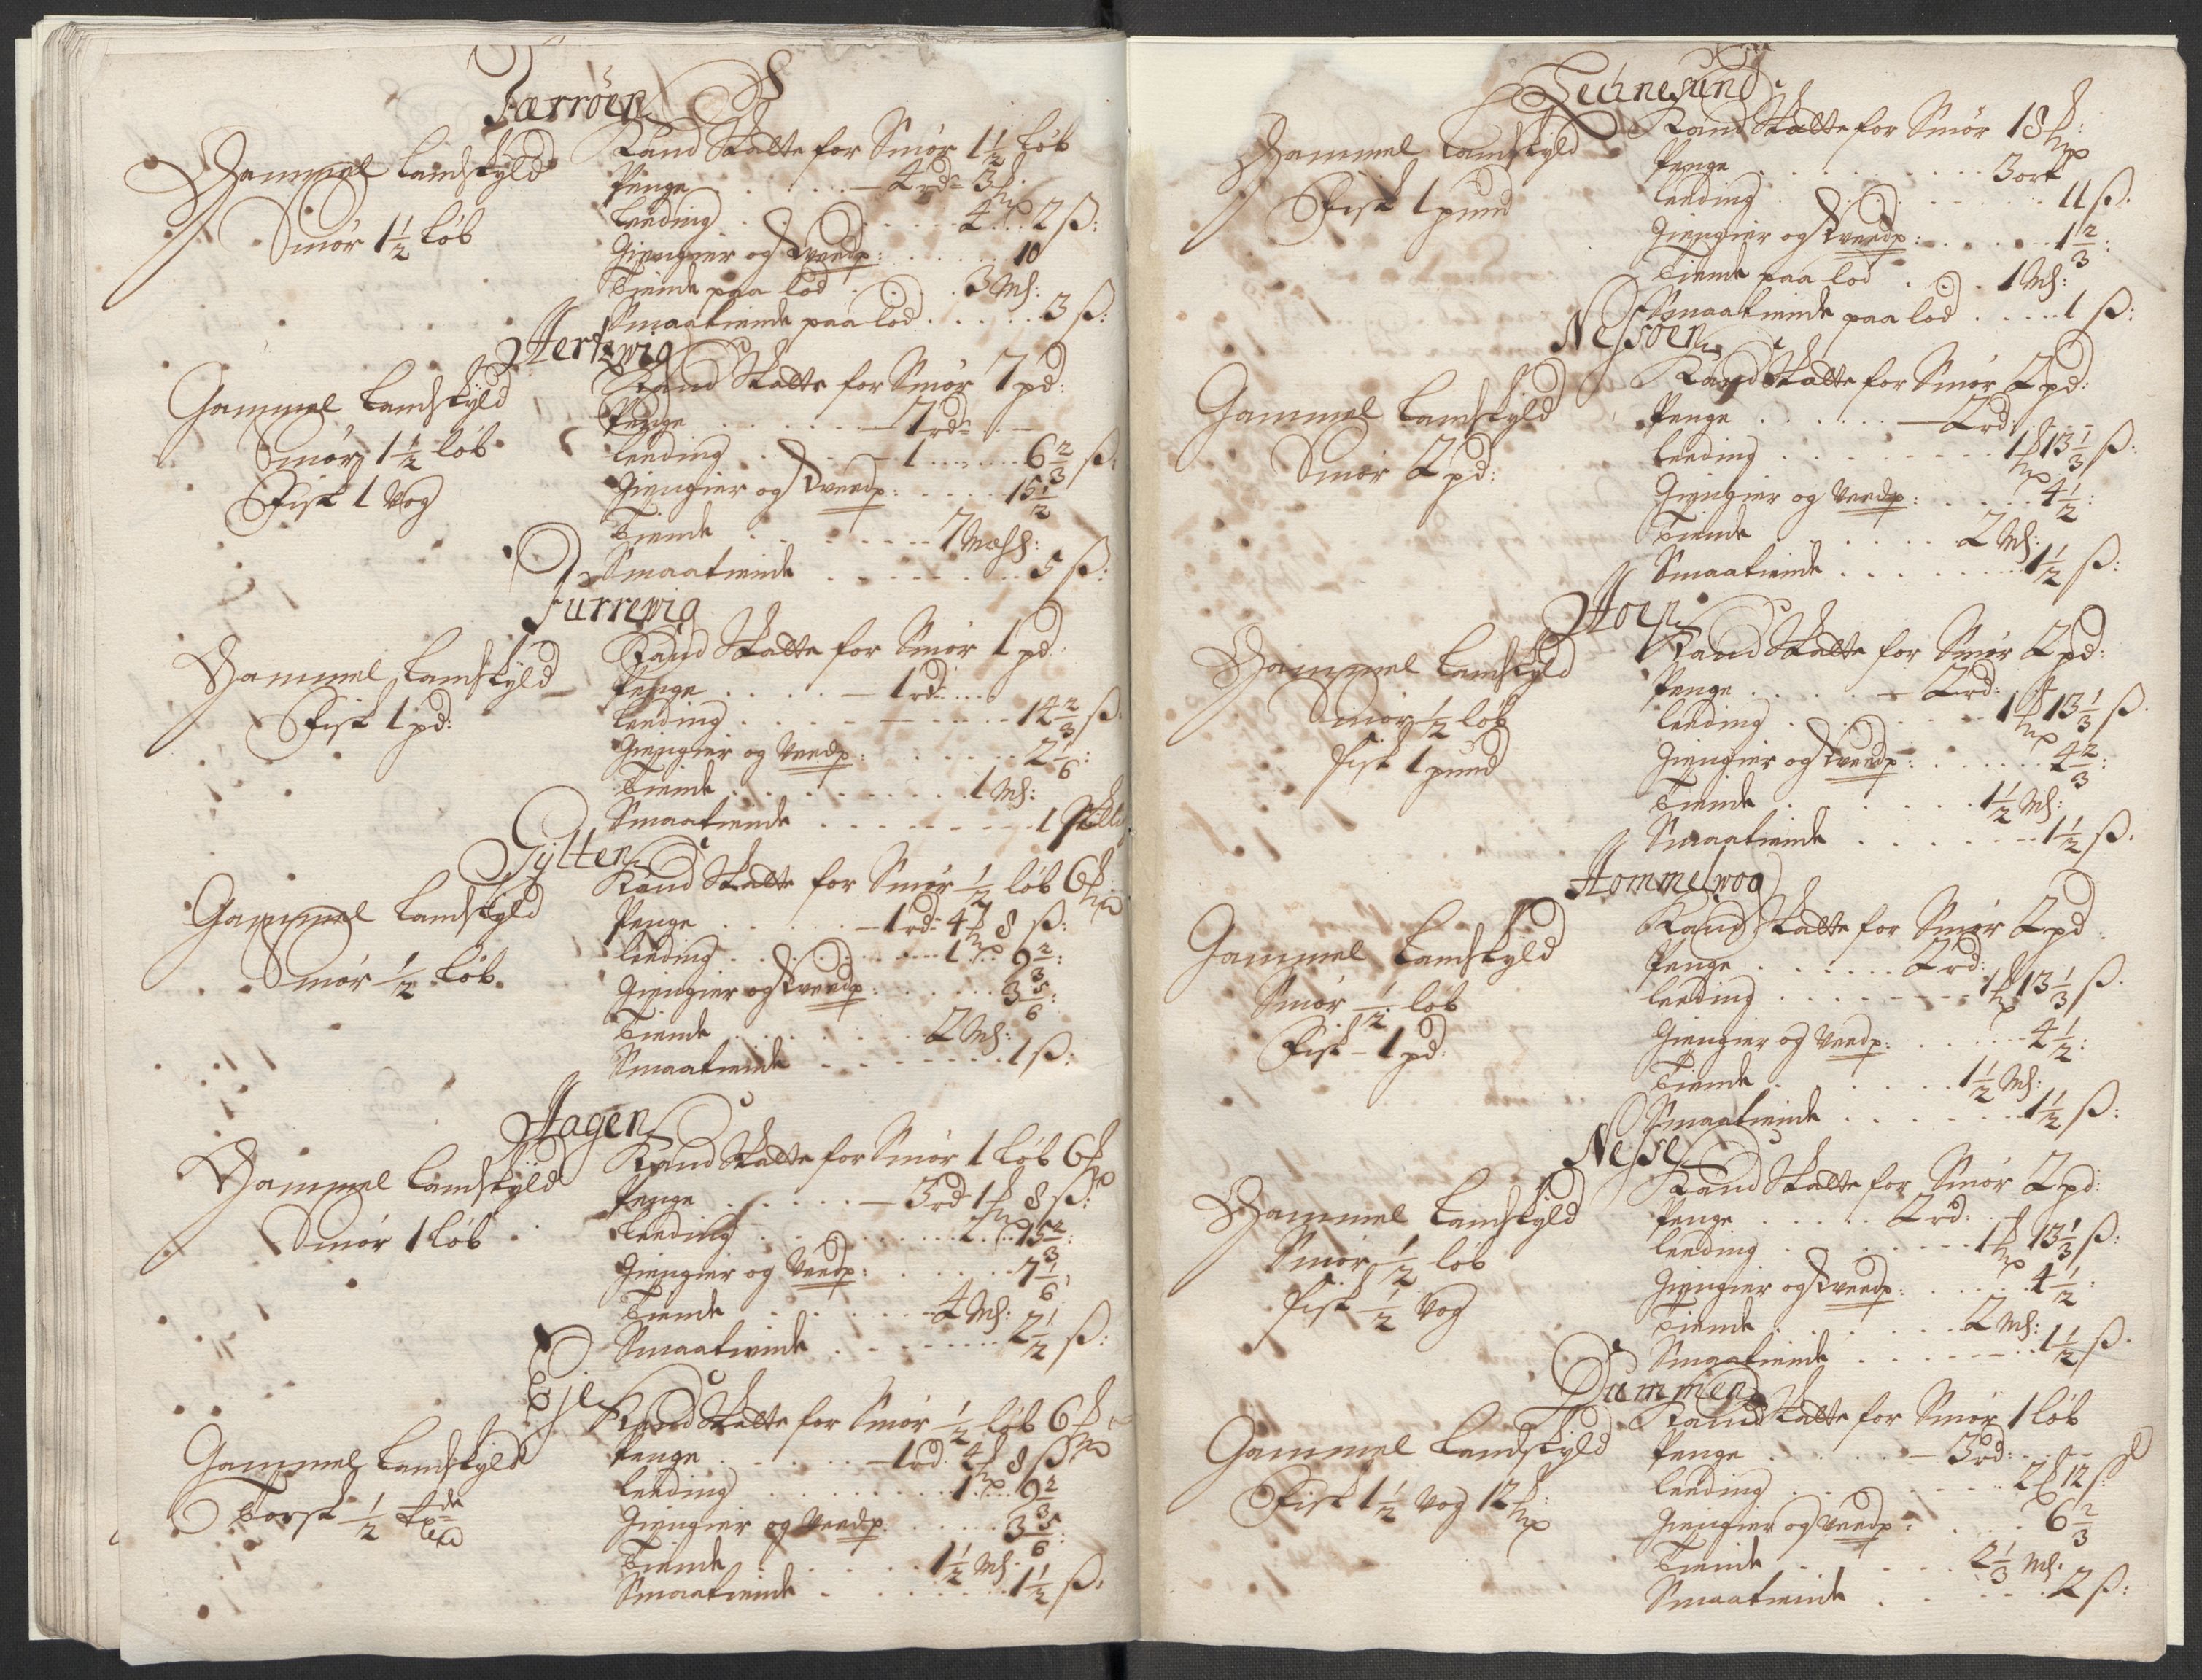 Færröen
Gammel Landskyld
Smör 1½ Löb
Kand Skatte for Smör 1½ Löb
Penge . . . . . 4 rd 3 
Leeding . . . . . 4 . . 2 ß:
Giengier og Veedp: . . . . . 10
Tiende paa lod . . 3 Mß:
Smaatiende paa lod . . . . . 3 ß:
Hertzwig
Gammel Landskyld
Smör 1½ Löb
Fisk 1 Vog
Kand Skatte for Smör 7 pd:
Penge . . . . . 7 rd
Leeding . . . . . 1 . . . . 6⅔ ß:
Giengier og Veedp: . . . . 15½
Tiende . . . . . 7 Mß:
Smaatiende . . . . . . 5 ß:
Furrewig
Gammel Landskyld
Fisk 1 pd:
Kand Skatte for Smör 1 pd
Penge . . . . 1 rd . . .
Leeding . . . . . . . 14⅔ ß:
Giengier og Veedp: . . . . . 2⅙:
Tiende . . . . . . 1 Mß:
Smaatiende . . . . . . 1 Skilling
Gylten
Gammel Landskyld
Smör ½ Löb
Kand Skatte for Smör ½ Löb 6
Penge . . . . . 1 rd 4 8 ß:
Leeding . . . . . . 1 . . 9⅔:
Giengier og Veedp: . . . . 3⅚:
Tiende . . . . . . 2 Mß:
Smaatiende . . . . . . . 1 ß:
Hagen
Gammel Landskyld
Smör 1 Löb
Kand Skatte for Smör 1 Löb 6
Penge . . . . . 3 rd 1 8 ß:
Leeding . . . . . . 2 . . 15⅔:
Giengier og Veedp: . . . . . 7⅙
Tiende . . . . . 4 Mß:
Smaatiende . . . . . . . 2½ ß:
Öje
Gammel Landskyld
Torsk ½
Kand Skatte for Smör ½ Löb 6
Penge . . . . . 1 rd 4 8 ß:
Leeding . . . . . . 1 . . 9⅔
Giengier og Veedp . . . . . 3⅚:
Tiende . . . . . 1½ Mß:
Smaatiende . . . . . . 1½ ß:
Technesund
Gammel Landskyld
Fisk 1 pund
Kand Skatte for Smör 18
Penge . . . . . . . 3 ort
Leeding . . . . . . . 11 ß.
Giengier og Veedp: . . . . . 1⅔:
Tiende paa lod . . . 1 Mß:
Smaatiende paa lod . . . . 1 ß:
Nessöen
Gammel Landskyld
Smör 2 pd:
Kand Skatte for Smör 2 pd:
Penge . . . . . 2 rd: . .
Leeding . . . . . . . 1 13⅓ ß:
Giengier og Veedp: . . . . . 4½:
Tiende . . . . . . 2 Mß:
Smaatiende . . . . . . 1½ ß:
Hoen
Gammel Landskyld
Smör ½ löb
Fisk 1 pund
Kand Skatte for Smör 2 pd:
Penge . . . . . 2 rd: .
Leeding . . . . . . . 1 13⅓ ß.
Giengier og Veedp: . . . . . 4⅔:
Tiende . . . . . . 1½ Mß:
Smaatiende . . . . . . 1½ ß.
Hommelwog
Gammel Landskyld
Smör ½ löb
Fisk 1 pd.
Kand Skatte for Smör 2 pd
Penge . . . . . . 2 rd:
Leeding . . . . . . . 1 13⅓ ß.
Giengier og Veedp: . . . . . 4½:
Tiende . . . . . . 1½ Mß:
Smaatiende . . . . . . 1½ ß:
Nesse
Gammel Landskyld
Smör ½ löb
Fisk ½ Vog
Kand Skatte for Smör 2 pd:
Penge . . . . . 2 rd: .
Leeding . . . . . . . 1 13⅓ ß:
Giengier og Veedp: . . . . . 4½:
Tiende . . . . . . 2 Mß:
Smaatiende . . . . . . 1½ ß.
Dummen
Gammel Landskyld
Fisk 1½ Vog 12
Kand Skatte for Smör 1 löb
Penge . . . . . 3 rd: . . .
Leeding . . . . . . . 2 12 ß
Giengier og Veedp: . . . . 6⅔
Tiende . . . . . . 2⅓ Mß.
Smaatiende . . . . . 2 ß: